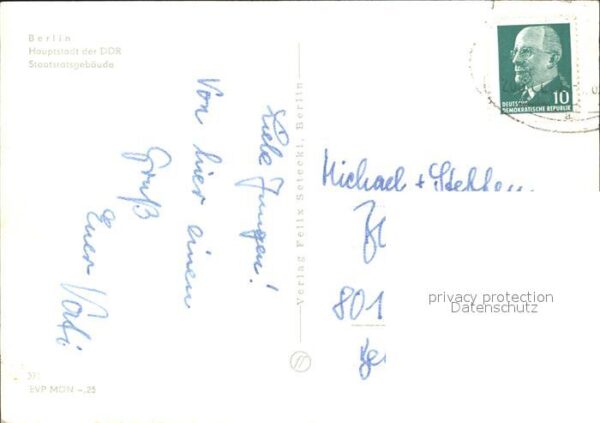 Berlin
Hauptstadt der DDR
Staatsratsgebäude
Liebe Jungen!
Von hier einen
Gruß
Euer Vati
EVP MDN -,25
Verlag Felix Setecki, Berlin
10
DEUTSCHE
DEMOKRATISCHE REPUBLIK
Michael + Steffen
801
privacy protection
Datenschutz